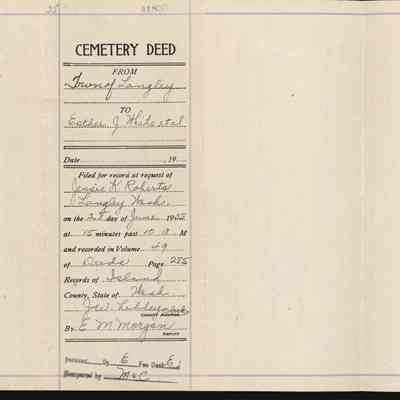 CEMETERY DEED
FROM
Town of Langley
TO
Esther J et al
Date , 19
Filed for record at request of
Jessie K Roberts
Langley Wash.
on the day of June 19
at 15 minutes past 10 M
and recorded in Volume 49
of Deeds Page 285
Records of Island
County, State of Wash.
County Auditor
By E M Morgan
Deputy
By E
Compared by M & C